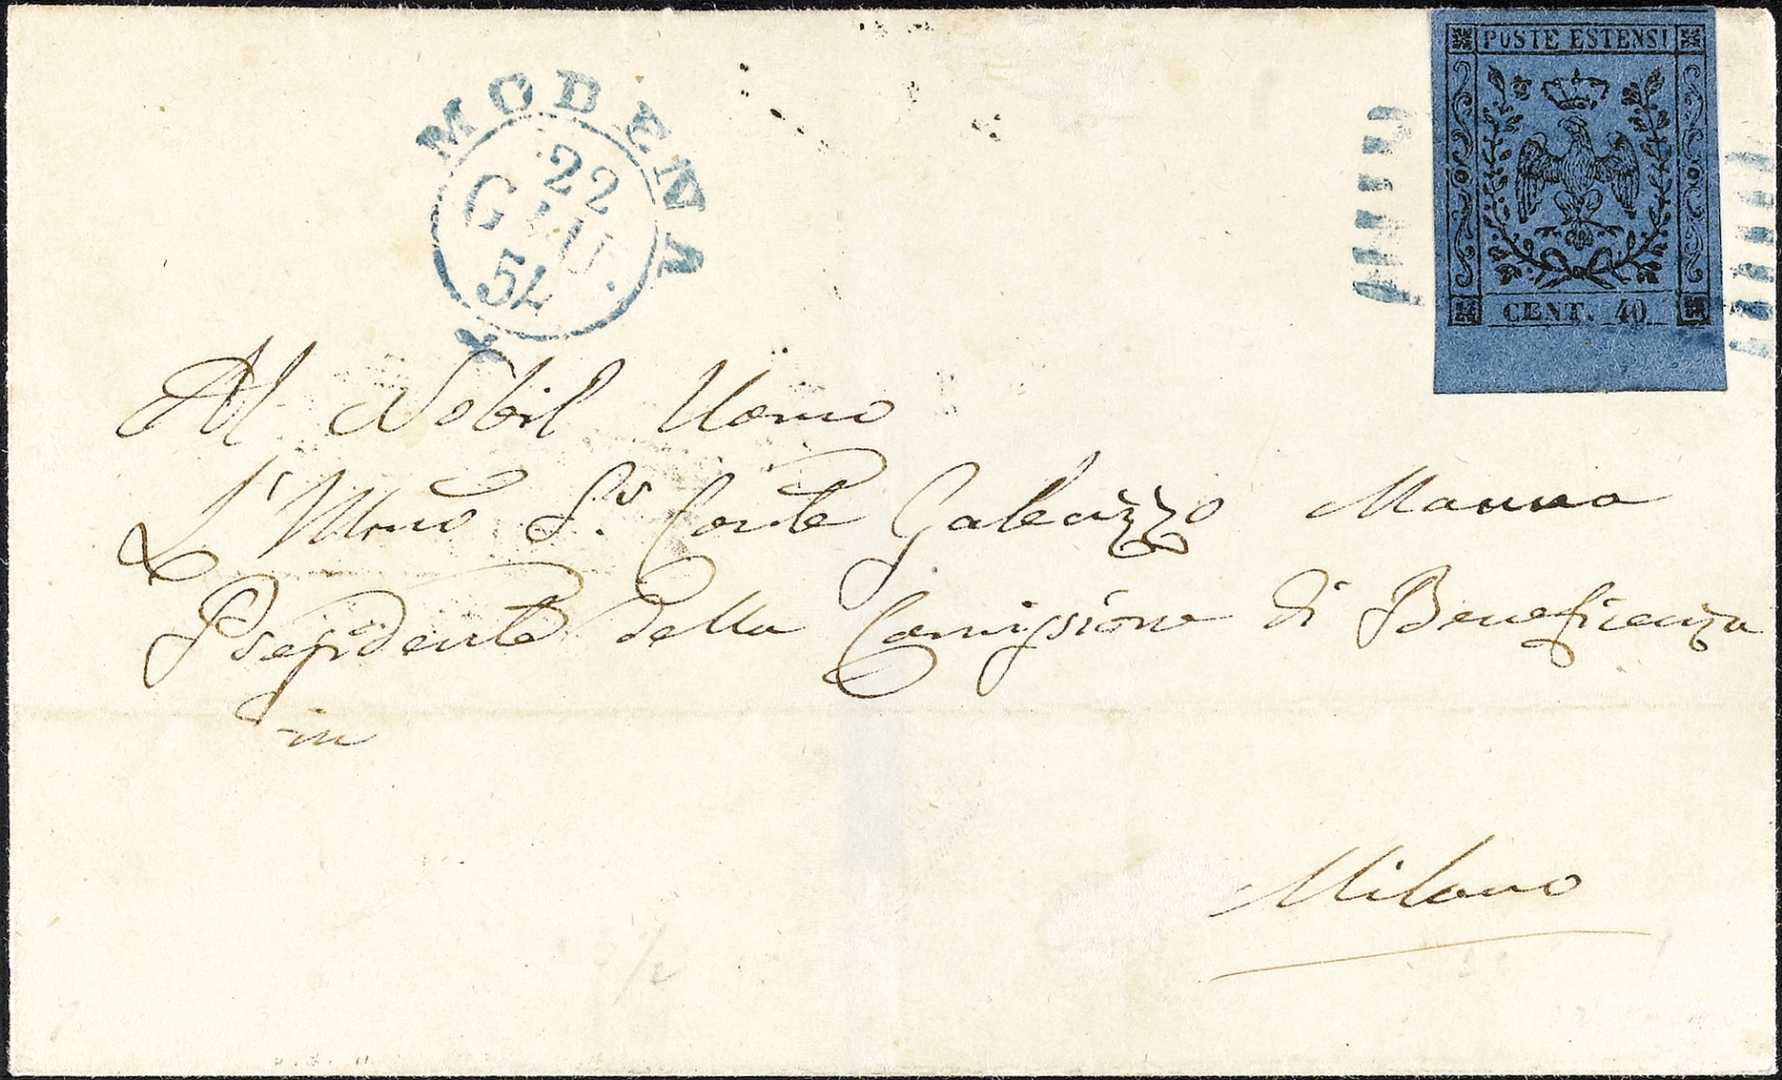 POSTE ESTENSI
CENT. 40
MODENA
22
GIU.
54
Al Nobil Uomo
L'Illmo Sr. Conte Galeazzo Manna
Presidente della Comissione di Beneficenza
in
Milano